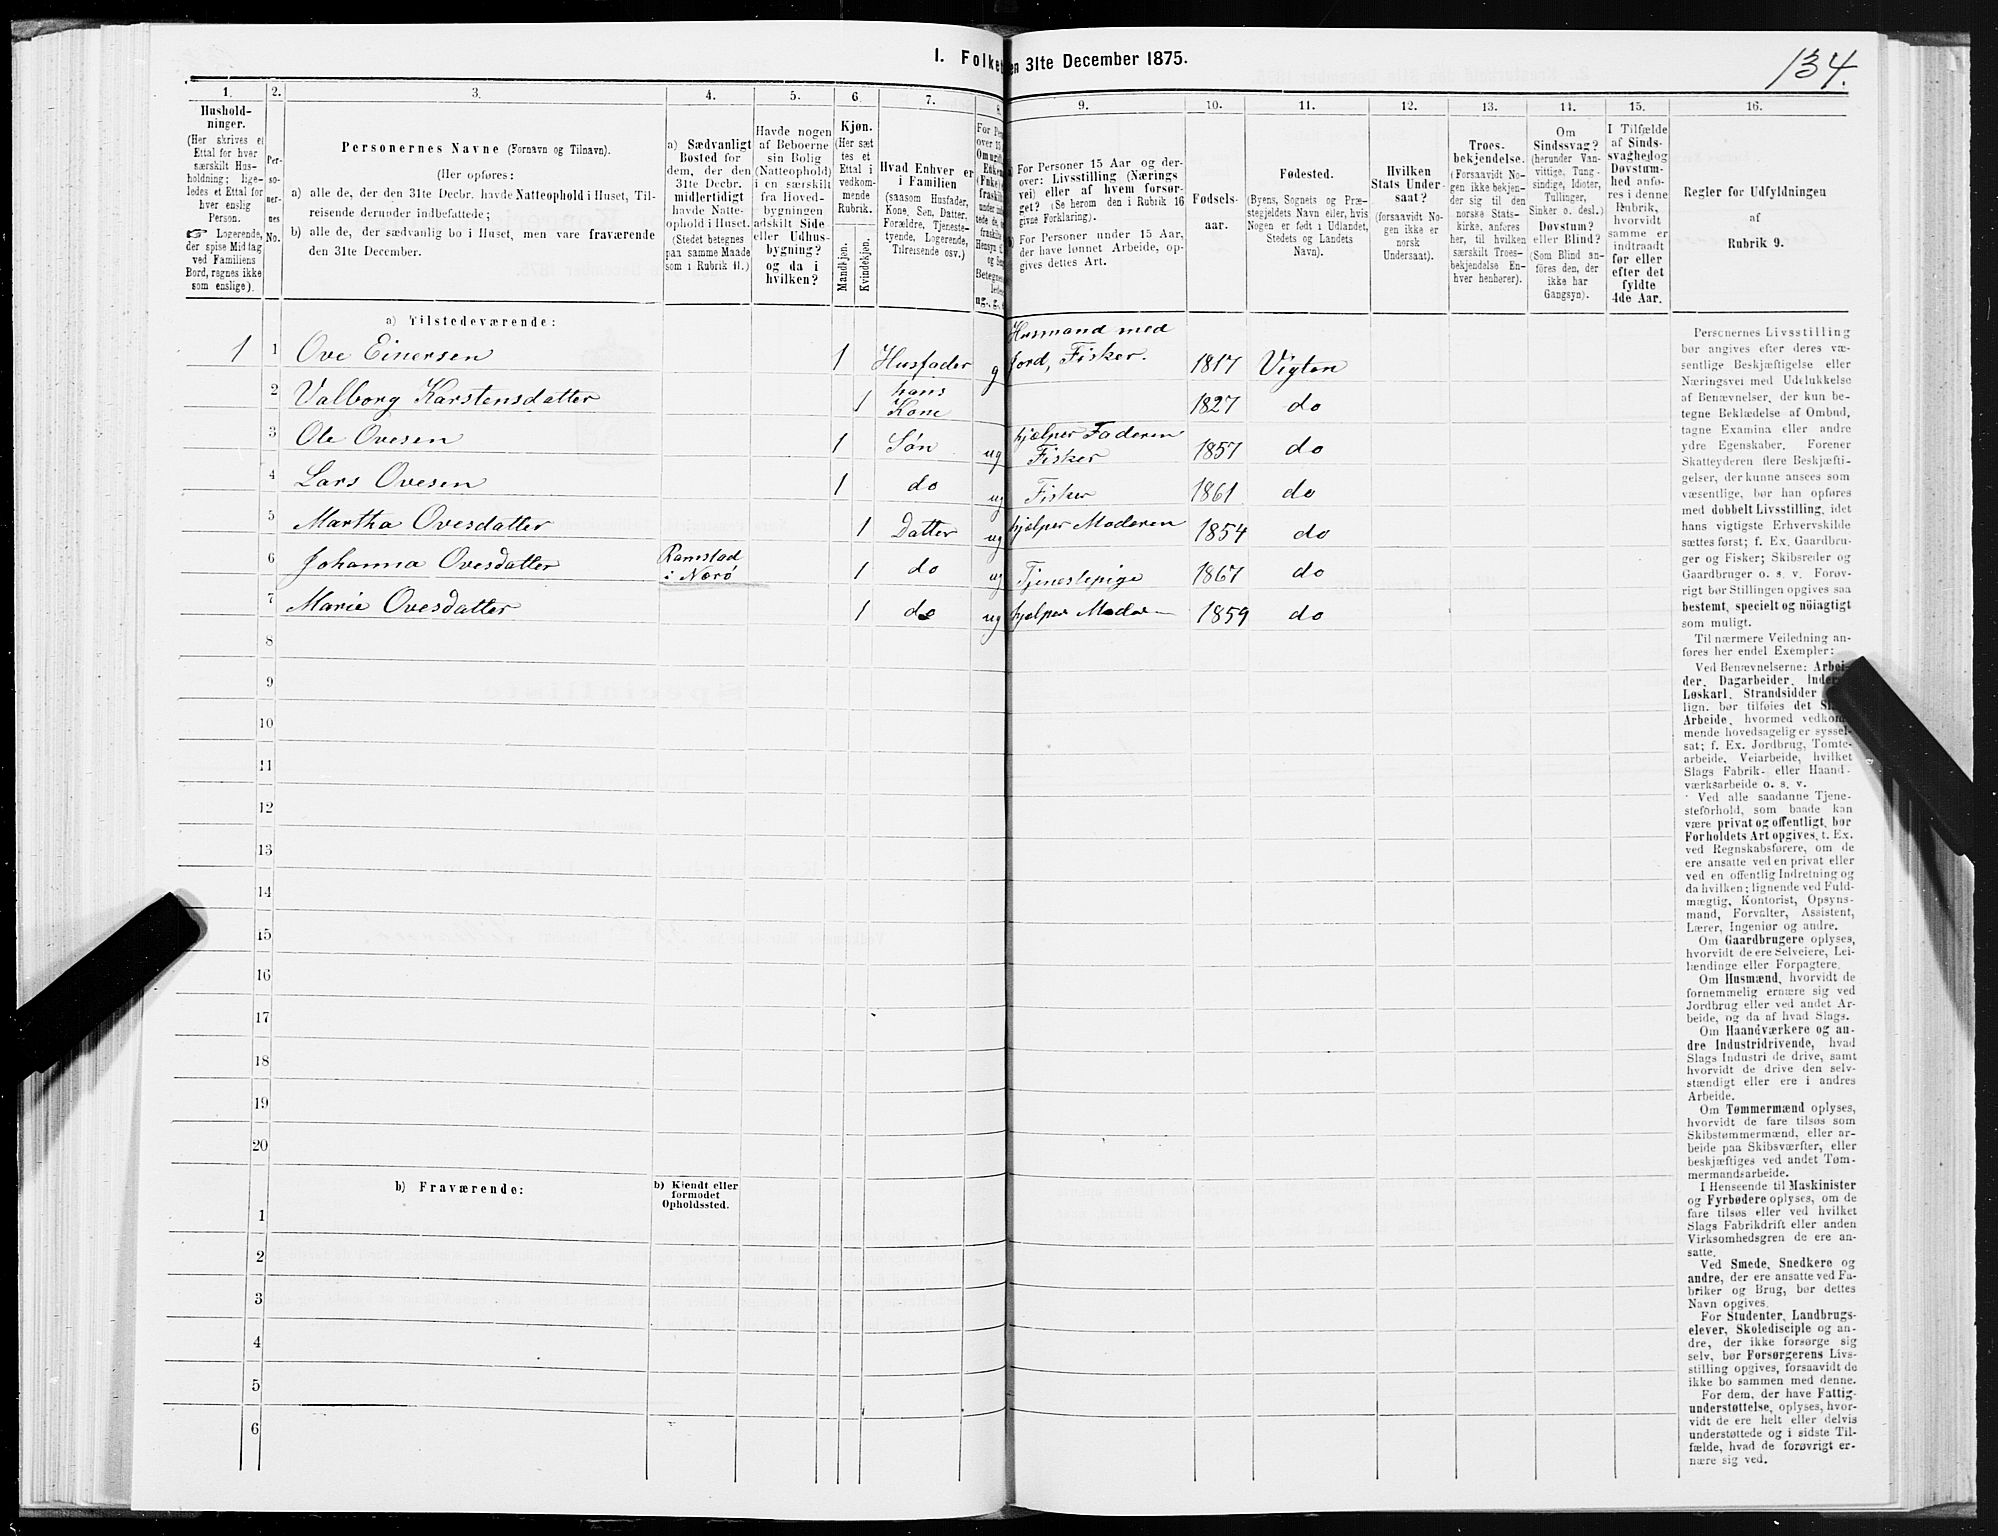 134.
I. Folke en 31te December 1875.
1. 2. 3. 4. 5. 6 7. 8. 9. 10. 11. 12. 13. 14. 15. 16.
Hushold-
ninger.
(Her skrives et
Ettal for hver
særskilt Hus-
holdning; lige-
ledes et Ettal for
hver enslig
Person.
☞ Logerende,
der spise Middag
ved Familiens
Bord, regnes ikke
som enslige).
Per-
so-
ner-
nes
No.
Personernes Navne (Fornavn og Tilnavn).
(Her opføres:
a) alle de, der den 31te Decbr. havde Natteophold i Huset, Til-
reisende derunder indbefattede;
b) alle de, der sædvanlig bo i Huset, men vare fraværende
den 31te December.
a) Sædvanligt
Bosted for
dem, der den
31te Decbr.
midlertidigt
havde Natte-
ophold i Huset.
(Stedet betegnes
paa samme Maade
som i Rubrik 11.)
Havde nogen
af Beboerne
sin Bolig
(Natteophold)
i en særskilt
fra Hoved-
bygningen
adskilt Side
eller Udhus-
bygning?
og da i
hvilken?
Kjøn.
(Her sæt
tes et
Ettal i
vedkom-
mende
Rubrik.
Mandkjøn.
Kvindekjøn.
Hvad Enhver er
i Familien
(saasom Husfader,
Kone, Søn, Datter,
Forældre, Tjeneste-
tyende, Logerende,
Tilreisende osv.)
For Pe
over 15
Omugift
Enkem
(Enke)
fraskilt
Betegne
ug., g.,
a) For Personer 15 Aar og der-
over: Livsstilling (Nærings
vei) eller af hvem forsør-
get? (Se herom den i Rubrik 16
givne Forklaring).
b) For Personer under 15 Aar,
der have lønnet Arbeide, op-
gives dettes Art.
Fødsels-
aar.
Fødested.
(Byens, Sognets og Præ-
stegjeldets Navn eller, hvis
Nogen er født i Udlandet,
Stedets og Landets
Navn).
Hvilken
Stats Under-
saat?
(forsaavidt No-
gen ikke er
norsk
Undersaat).
Troes-
bekjendelse.
(Forsaavidt No-
gen ikke bekjen-
der sig til den
norske Stats-
kirke, anføres
her, til hvilken
særskilt Troes-
bekjendelse En-
hver henhører).
Om
Sindssvag?
(herunder Van-
vittige, Tung-
sindige, Idioter,
Tullinger,
Sinker o. desl.)
Døvstum?
eller Blind?
(Som Blind an-
føres den, der
ikke har
Gangsyn).
I Tilfælde
af Sinds-
svaghed og
Døvstum-
hed anfø-
res i denne
Rubrik,
hvorvidt
samme er
indtraadt
før eller
efter det
fyldte
4de Aar.
Regler for Udfyldningen
af
Rubrik 9.
a) Tilstedeværende:
1 1 Ove Einersen 1 Husfader g Husmand med Jord, Fisker. 1817 Vigten
2 Valborg Karstensdatter 1 hans Kone 1827 do
3 Ole Ovesen 1 Søn ug hjelper Faderen Fisker 1857 do
4 Lars Ovesen 1 do ug Fisker 1861 do
5 Martha Ovesdatter 1 Datter ug hjelper Moderen 1854 do
6 Johanna Ovesdatter Ramstad i Nærø 1 do ug Tjenestepige 1867 do
7 Marie Ovesdatter 1 do ug hjelper Moder 1859 do
8
9
10
11
12
13
14
15
16
17
18
19
20
b) Fraværende:
b) Kjendt eller
formodet
Opholdssted.
1
2
3
4
5
6
Personernes Livsstilling
bør angives efter deres væ-
sentlige Beskjæftigelse eller
Næringsvei med Udelukkelse
af Benævnelser, der kun be-
tegne Beklædelse af Ombud,
tagne Examina eller andre
ydre Egenskaber. Forener
Skatteyderen flere Beskjæfti-
gelser, der kunne ansees som
væsentlige, bør han opføres
med dobbelt Livsstilling, idet
hans vigtigste Erhvervskilde
sættes først; f. Ex. Gaardbru-
ger og Fisker; Skibsreder og
Gaardbruger o. s. v. Forøv-
rigt bør Stillingen opgives saa
bestemt, specielt og nöiagtigt
som muligt.
Til nærmere Veiledning an-
føres her endel Exempler:
Ved Benævnelserne: Arbei-
der, Dagarbeider, Inder
Løskarl, Strandsidder
lign. bør tilføies det Sl
Arbeide, hvormed vedkom-
mende hovedsagelig er syssel-
sat; f. Ex. Jordbrug, Tomte-
arbeide, Veiarbeide, hvilket
Slags Fabrik- eller Haand-
værksarbeide o. s. v.
Ved alle saadanne Tjene-
steforhold, som baade kan
være privat og offentligt, bør
Forholdets Art opgives, t. Ex.
ved Regnskabsførere, om de
ere ansatte ved en privat eller
ved en offentlig Indretning og
da hvilken; lignende ved Fuld-
mægtig, Kontorist, Opsyns-
mand, Forvalter, Assistent,
Lærer, Ingeniør og andre.
Om Gaardbrugere oplyses,
hvorvidt de ere Selveiere, Lei-
lændinge eller Forpagtere.
Om Husmænd, hvorvidt de
fornemmelig ernære sig ved
Jordbrug eller ved andet Ar-
beide, og da af hvad Slags.
Om Haandværkere og an-
dre Industridrivende, hvad
Slags Industri de drive, samt
hvorvidt de drive den selv-
stændigt eller ere i andres
Arbeide.
Om Tømmermænd oplyses,
hvorvidt de fare tilsøs som
Skibstømmermænd, eller ar-
beide paa Skibsværfter, eller
beskjæftiges ved andet Tøm-
mermandsarbeide.
I Henseende til Maskinister
og Fyrbødere oplyses, om de
fare tilsøs eller ved hvilket
Slags Fabrikdrift eller anden
Virksomhedsgren de ere an-
satte.
Ved Smede, Snedkere og
andre, der ere ansatte ved Fa-
briker og Brug, bør dettes
Navn opgives.
For Studenter, Landbrugs-
elever, Skoledisciple og an-
dre, der ikke forsørge sig
selv, bør Forsørgerens Livs-
stilling opgives, forsaavidt de
ikke bo sammen med denne.
For dem, der have Fattig-
understøttelse, oplyses, hvor-
vidt de ere helt eller delvis
understøttede og i sidste Til-
fælde, hvad de forøvrigt er-
nære sig ved.